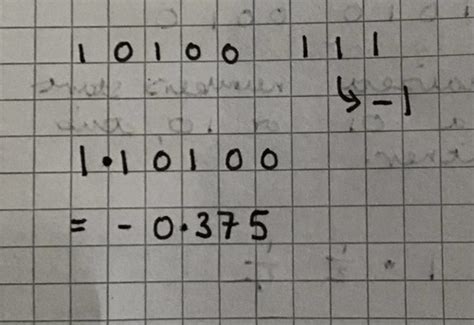 10100 111
↳ -1
1.10100
= - 0.375